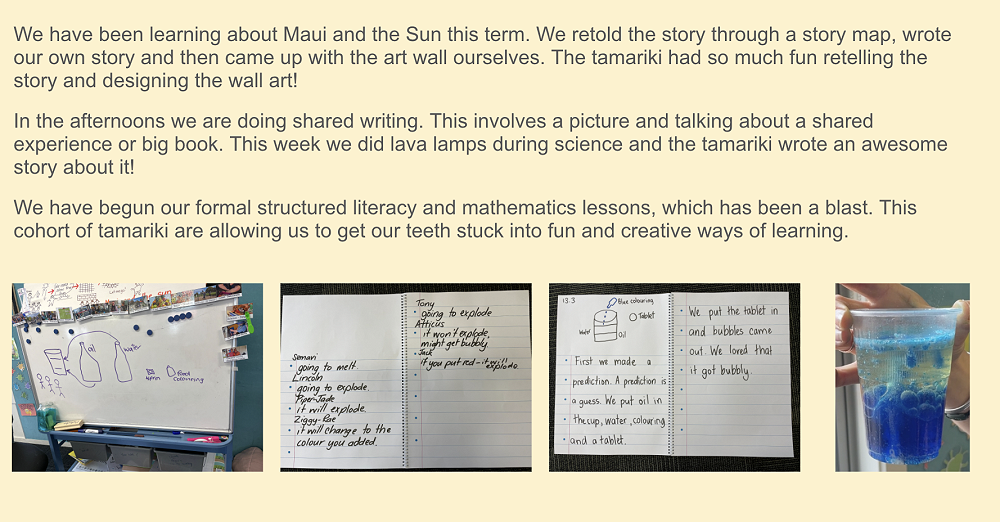 We have been learning about Maui and the Sun this term. We retold the story through a story map, wrote
our own story and then came up with the art wall ourselves. The tamariki had so much fun retelling the
story and designing the wall art!
In the afternoons we are doing shared writing. This involves a picture and talking about a shared
experience or big book. This week we did lava lamps during science and the tamariki wrote an awesome
story about it!
We have begun our formal structured literacy and mathematics lessons, which has been a blast. This
cohort of tamariki are allowing us to get our teeth stuck into fun and creative ways of learning.
oil
water
Food
Colouring
Semari
going to melt.
Lincoln
going to explode.
Piper-Jade
it will explode.
Ziggy-Rae
it will change to the
colour you added.
Tony
going to explode
Atticus
it won't explode,
might get bubbly.
Jack
if you put red - it will
explode.
13.3
Blue colouring
Tablet
Water
Oil
First we made a
prediction. A prediction is
a guess. We put oil in
the cup, water, colouring
and a tablet.
We put the tablet in
and bubbles came
out. We loved that
it got bubbly.